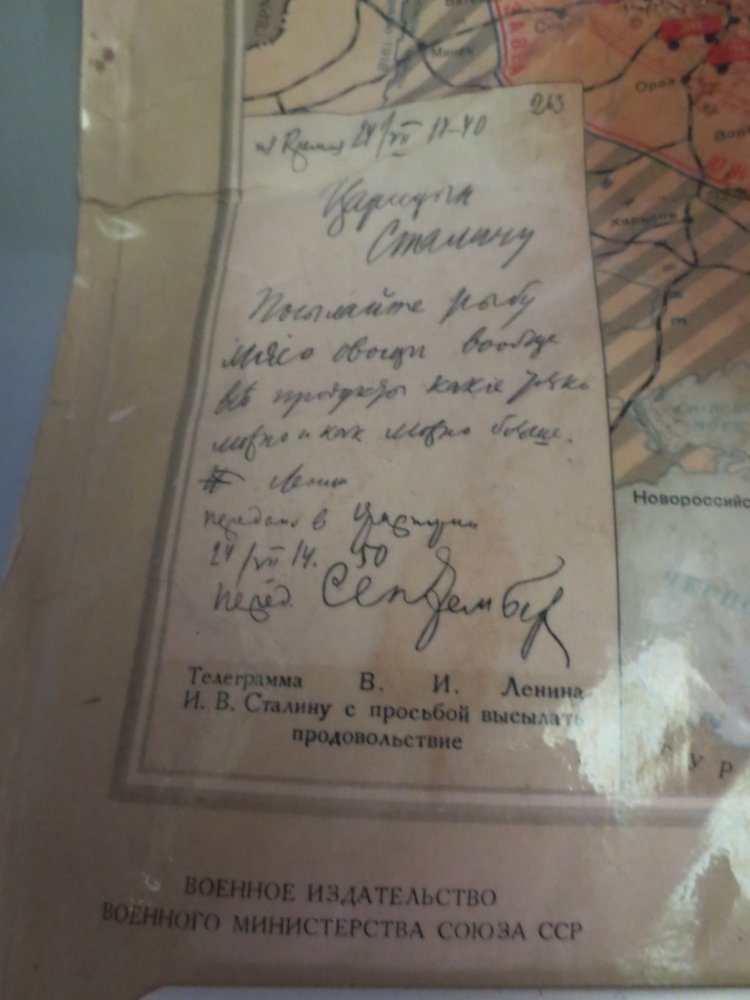 Минск
Орел
Харьков
263
из Кремля 24/VII 12-40
Царицын
Сталину
Посылайте рыбу
мясо овощи вообще
все продукты какие только
можно и как можно больше.
Ленин
передана в Царицын
24/VII 14. 50
перед.
Новороссийс
ЧЕРНО
Телеграмма В. И. Ленина
И. В. Сталину с просьбой высылать
продовольствие
ВОЕННОЕ ИЗДАТЕЛЬСТВО
ВОЕННОГО МИНИСТЕРСТВА СОЮЗА ССР